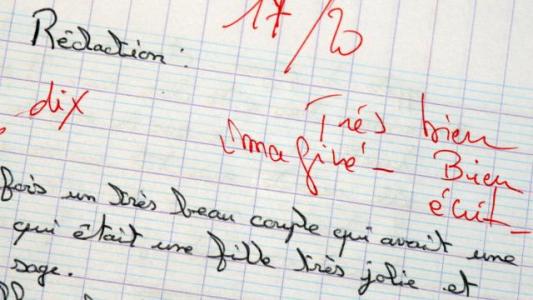 17/20
Rédaction :
dix
Très bien
imaginé - Bien
écrit -
fois un très beau couple qui avait une
qui était une fille très jolie et
sage.